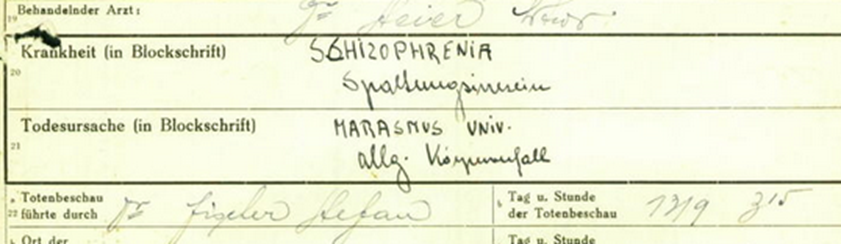 Behandelnder Arzt: Dr
19
Krankheit (in Blockschrift) SCHIZOPHRENIA
20 Spaltungsirresein
Todesursache (in Blockschrift) MARASMUS UNIV.
21 allg. Körperverfall
Totenbeschau
22 führte durch Dr Stefan
Tag u. Stunde
der Totenbeschau 13/9 3 15
Ort der
Tag u. Stunde